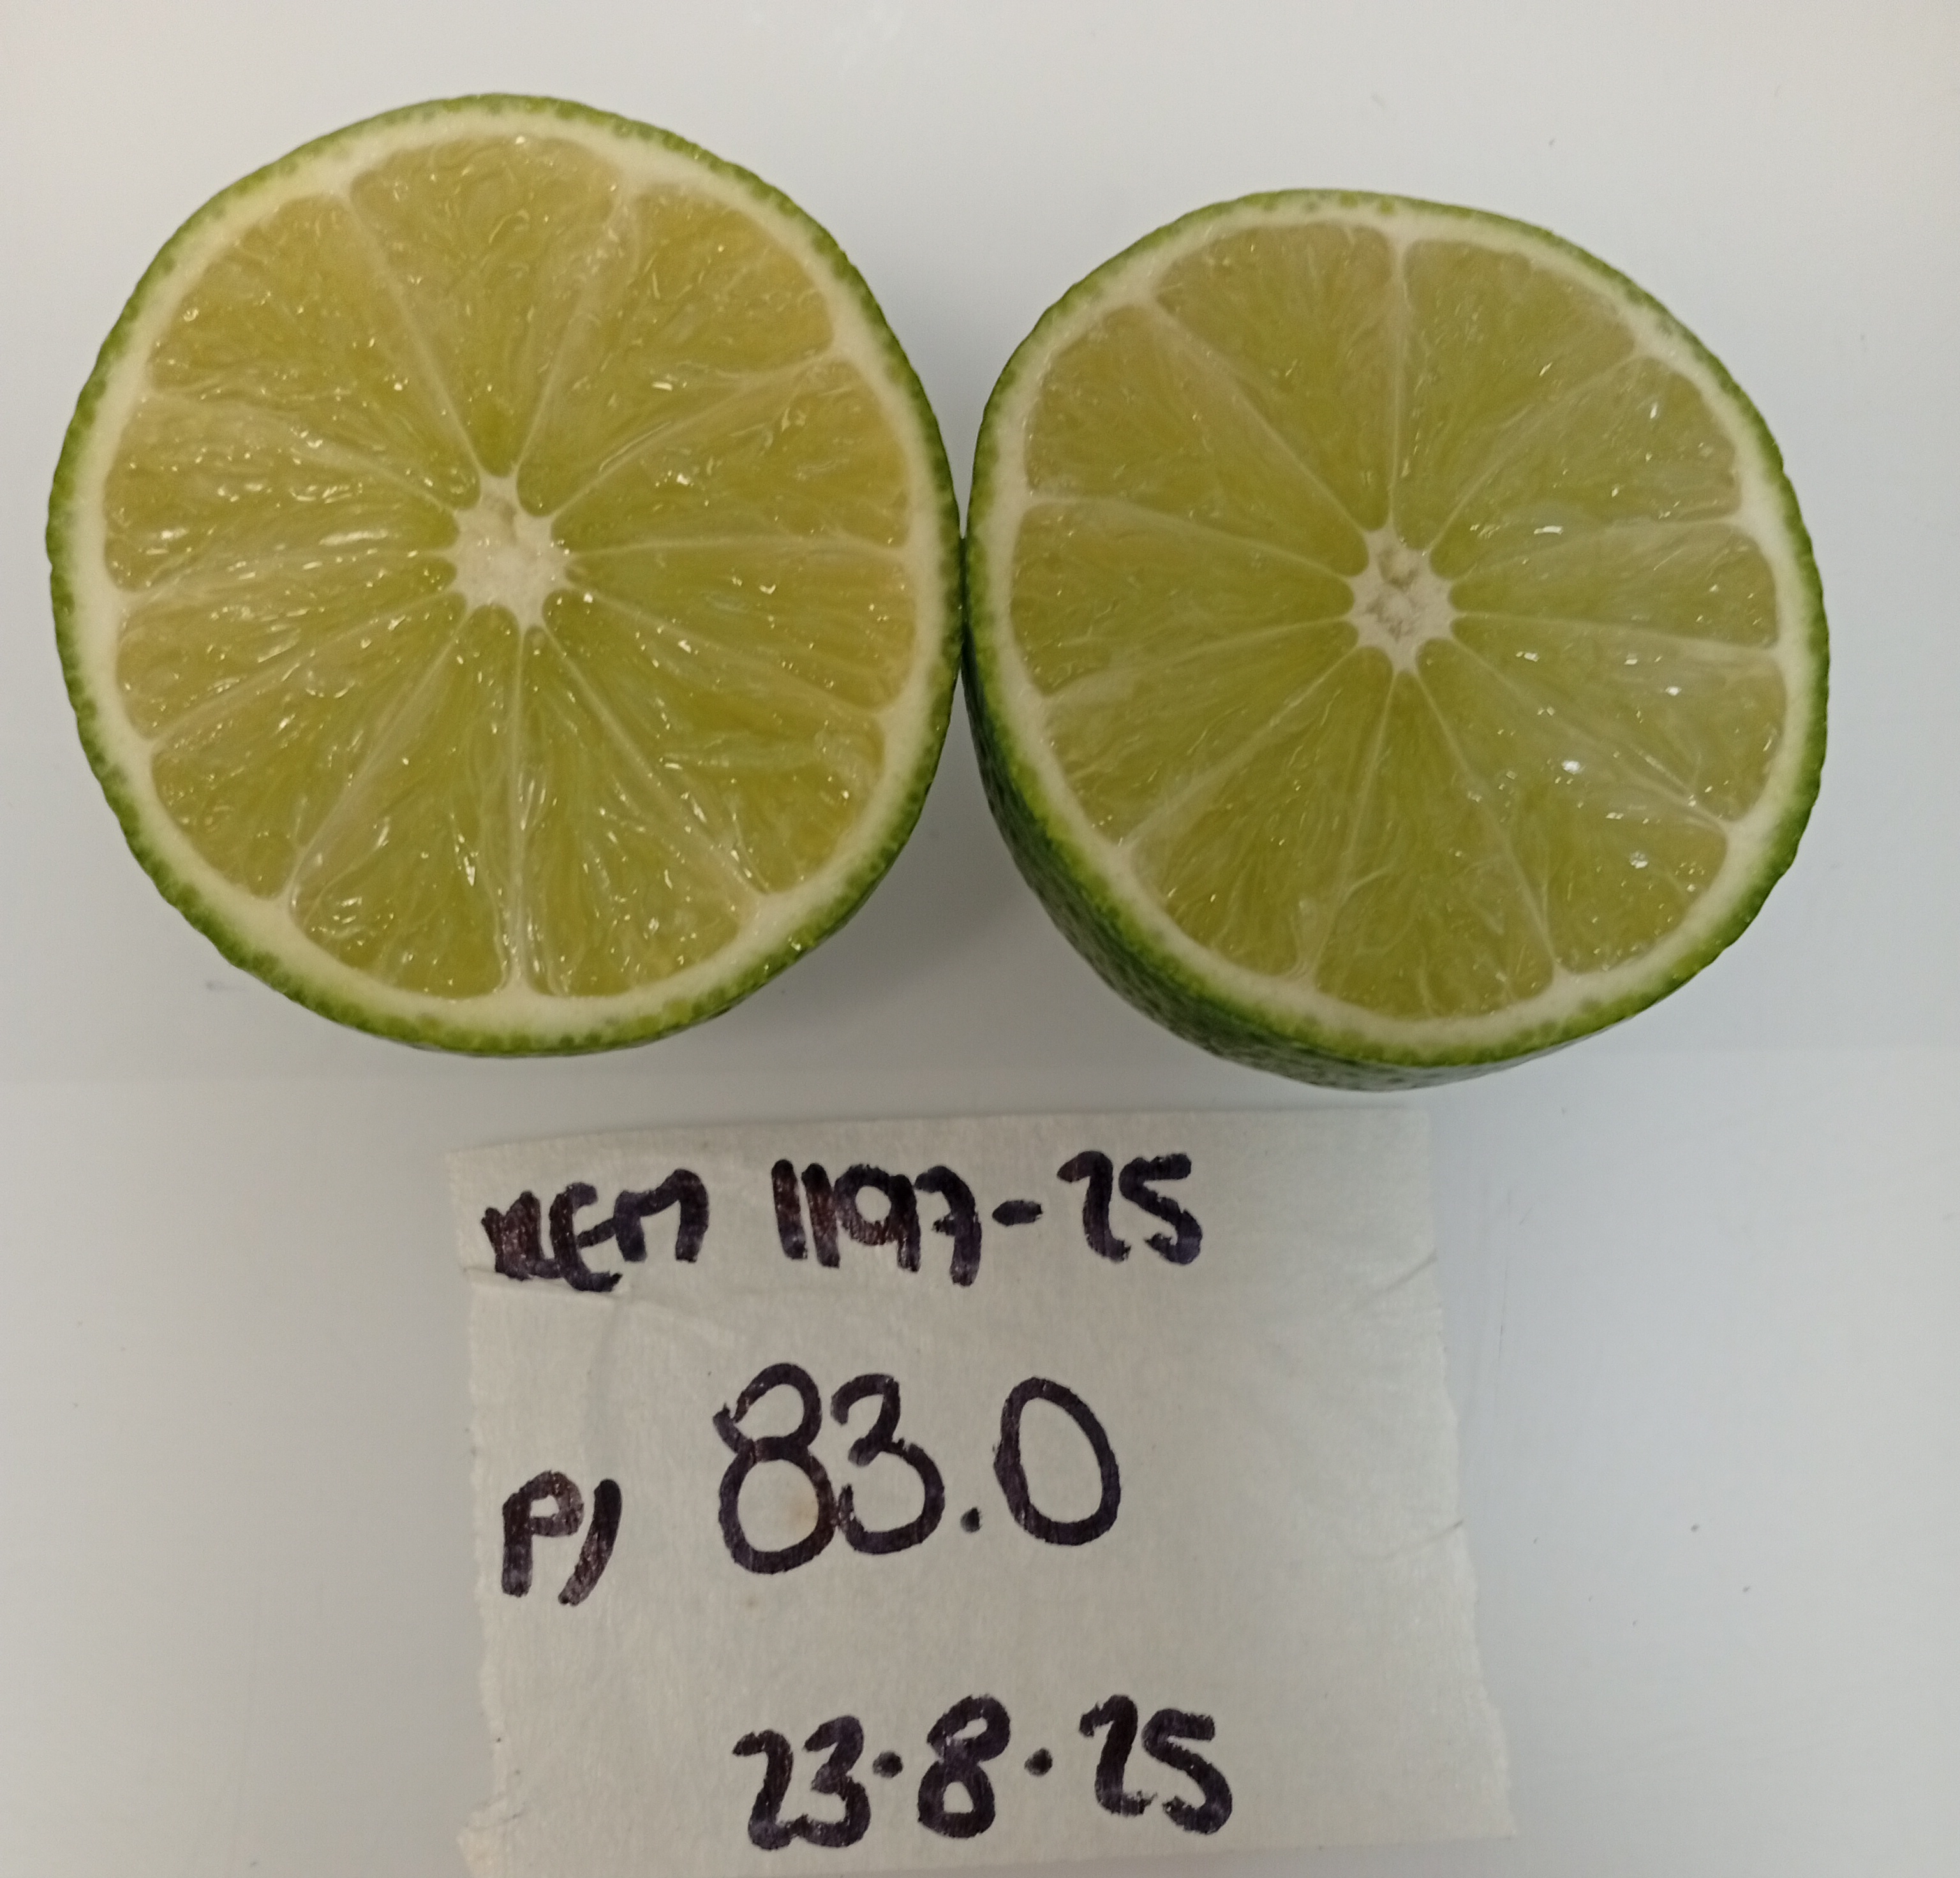 KEM 1197-25
P) 83.0
23.8.25